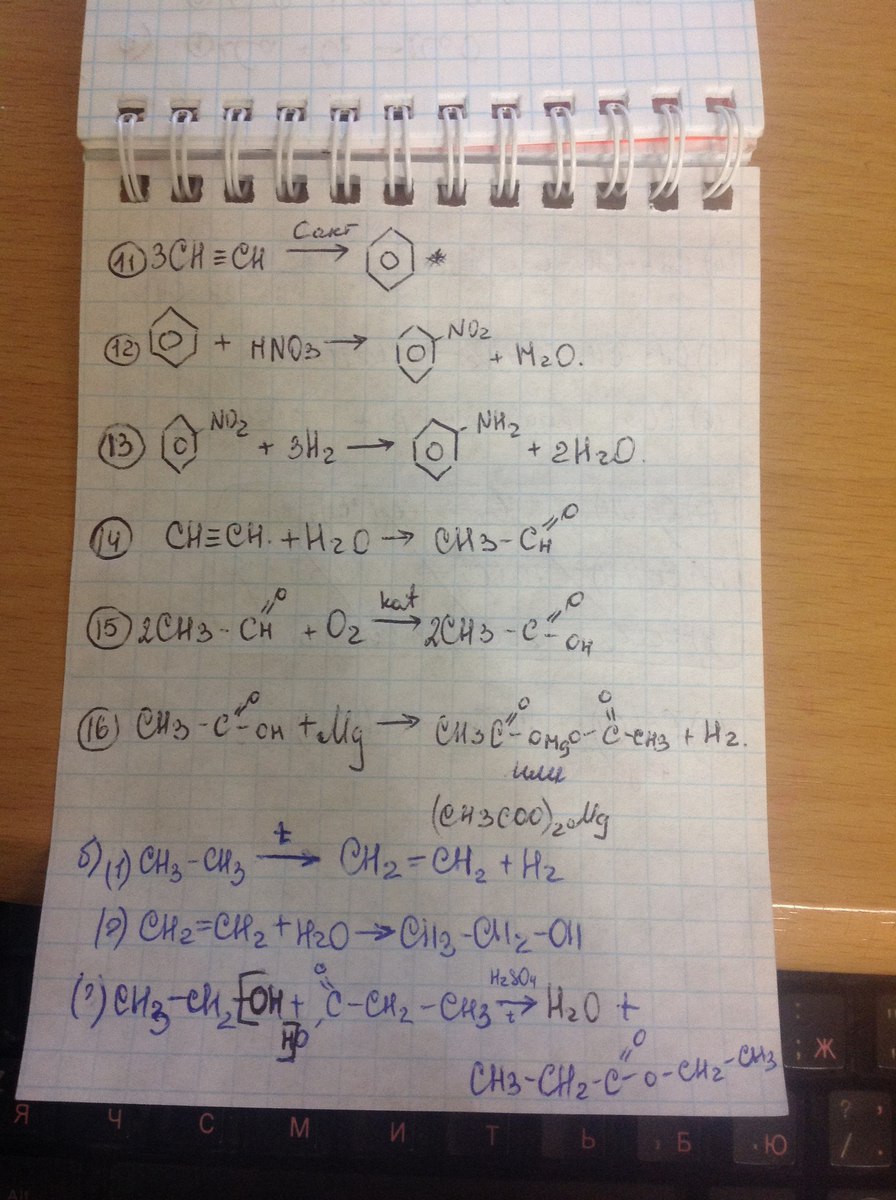 (11) 3CH≡CH —Cакт→ ⌬
(12) ⌬ + HNO3 → ⌬-NO2 + H2O.
(13) ⌬-NO2 + 3H2 → ⌬-NH2 + 2H2O.
(14) CH≡CH. + H2O → CH3-CH=O
(15) 2CH3-CH=O + O2 —kat→ 2CH3-C=O-OH
(16) CH3-C=O-OH + Mg → CH3C=O-OMgO-C=O-CH3 + H2.
или
(CH3COO)2Mg
б) (1) CH3-CH3 —t→ CH2=CH2 + H2
(2) CH2=CH2 + H2O → CH3-CH2-OH
(3) CH3-CH2-[OH + H]O-C=O-CH2-CH3 —H2SO4, t→ H2O +
CH3-CH2-C=O-O-CH2-CH3
Ж
? ,
; /
Я Ч С М И Т Ь Б . Ю